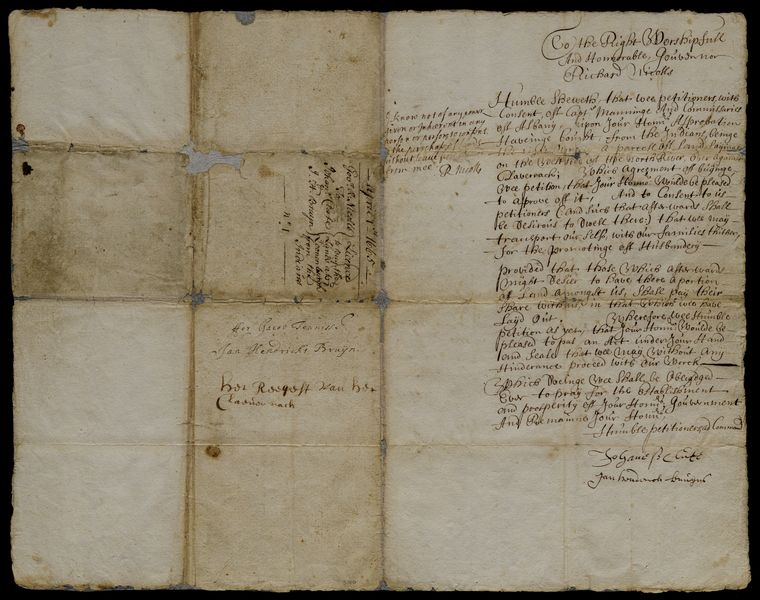 To the Right Worshipfull
And Honnorable, Gouvernor
Richard Nicolls
Humble Sheweth, that wee petitioners, with
Consent, off Capt Manninge And Commissaries
off Albany upon Your Honnrs Approbation
Haveinge bought from the Indians, beinge
a parcell off Land, Layinge
on the West side of the North River, over against
Claverack; Which Agreement off buyinge
Wee petition, that Your Honnr Would be pleased
to aprove off it, And to Consent to us
petitioners (And such that Afterwards Shall
be Desirous to Dwell there;) that wee may
transport our Selfs, with our families thither,
for the promotinge off Husbandery
provided that those Which afterwards
might Desier to have there a portion
of Land amongst us, Shall pay their
Share with us in that Which wee have
Layd Out. Wherefore wee Humble
petition as yet, that Your Honnr Woulde be
pleased to put an Act under Your Hand
and Seale that wee may Without Any
Hinderance proceed with our Worck
Which Doeinge Wee Shall be Obeidged
Ever to pray for the Establishment
and prosperity off Your Honnrs Gouvernment
And Remaine Your Honnrs
Humble, petitioners and Command
Johannes Clute
Jan hendrick bruyns
I know not of any
given or inherent in any
person or persons
the purchase of
without leave
from mee R. Nicolls
Aprill 1665
Govr Nicolls's Licence
to
Johan Clute &
J. H. Bruyn
to buy the
Land
from the
Indians
no 1
Jan Hendricks Bruyn
Het Reegest van het
Claeuernack